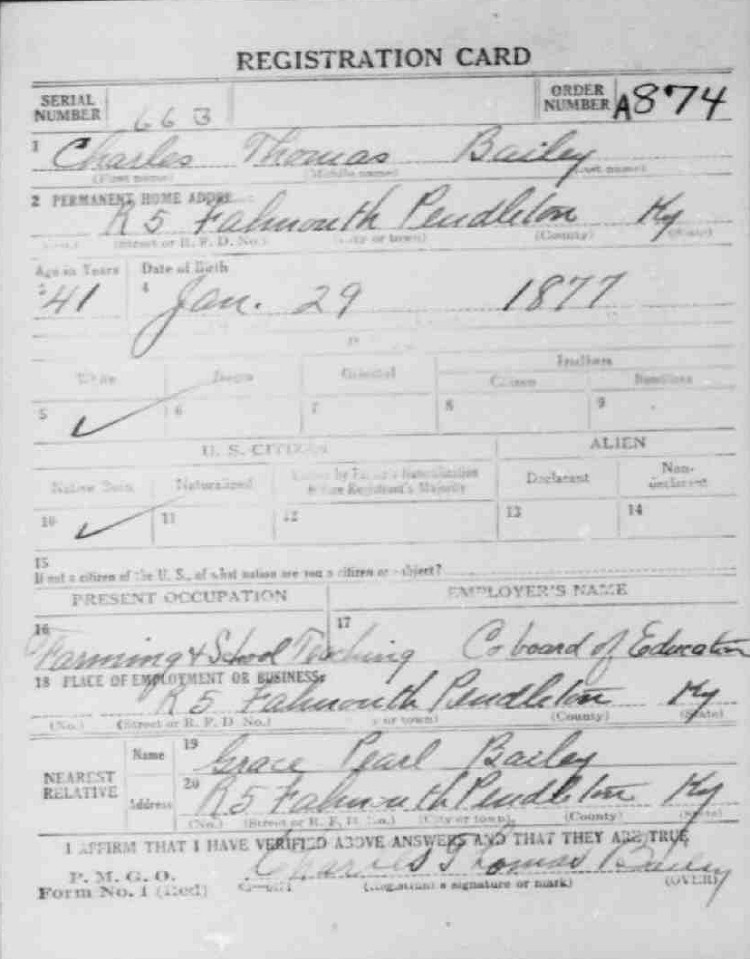 REGISTRATION CARD
SERIAL NUMBER 663 ORDER NUMBER A874
1 Charles Thomas Bailey
(First name) (Middle name) (Last name)
2 PERMANENT HOME ADDRE
R 5 Falmouth Pendleton Ky
(Street or R. F. D. No.) (City or town) (County) (State)
Age in Years Date of Birth
3 41 4 Jan. 29 1877
White Negro Oriental Citizen
5 ✓ 6 7 8 9
U. S. CITIZEN ALIEN
Native Born Naturalized Citizen by Father's Naturalization Before Registrant's Majority Declarant Non-declarant
10 ✓ 11 12 13 14
15
If not a citizen of the U. S., of what nation are you a citizen or subject?
PRESENT OCCUPATION EMPLOYER'S NAME
16 17
Farming & School Teaching Co board of Education
18 PLACE OF EMPLOYMENT OR BUSINESS:
R 5 Falmouth Pendleton Ky
(No.) (Street or R. F. D. No.) (City or town) (County) (State)
NEAREST RELATIVE Name 19 Grace Pearl Bailey
Address 20 R 5 Falmouth Pendleton Ky
(No.) (Street or R. F. D. No.) (City or town) (County) (State)
I AFFIRM THAT I HAVE VERIFIED ABOVE ANSWERS AND THAT THEY ARE TRUE
Charles Thomas Bailey
P. M. G. O.
Form No. 1 (Red) (Registrant's signature or mark) (OVER)